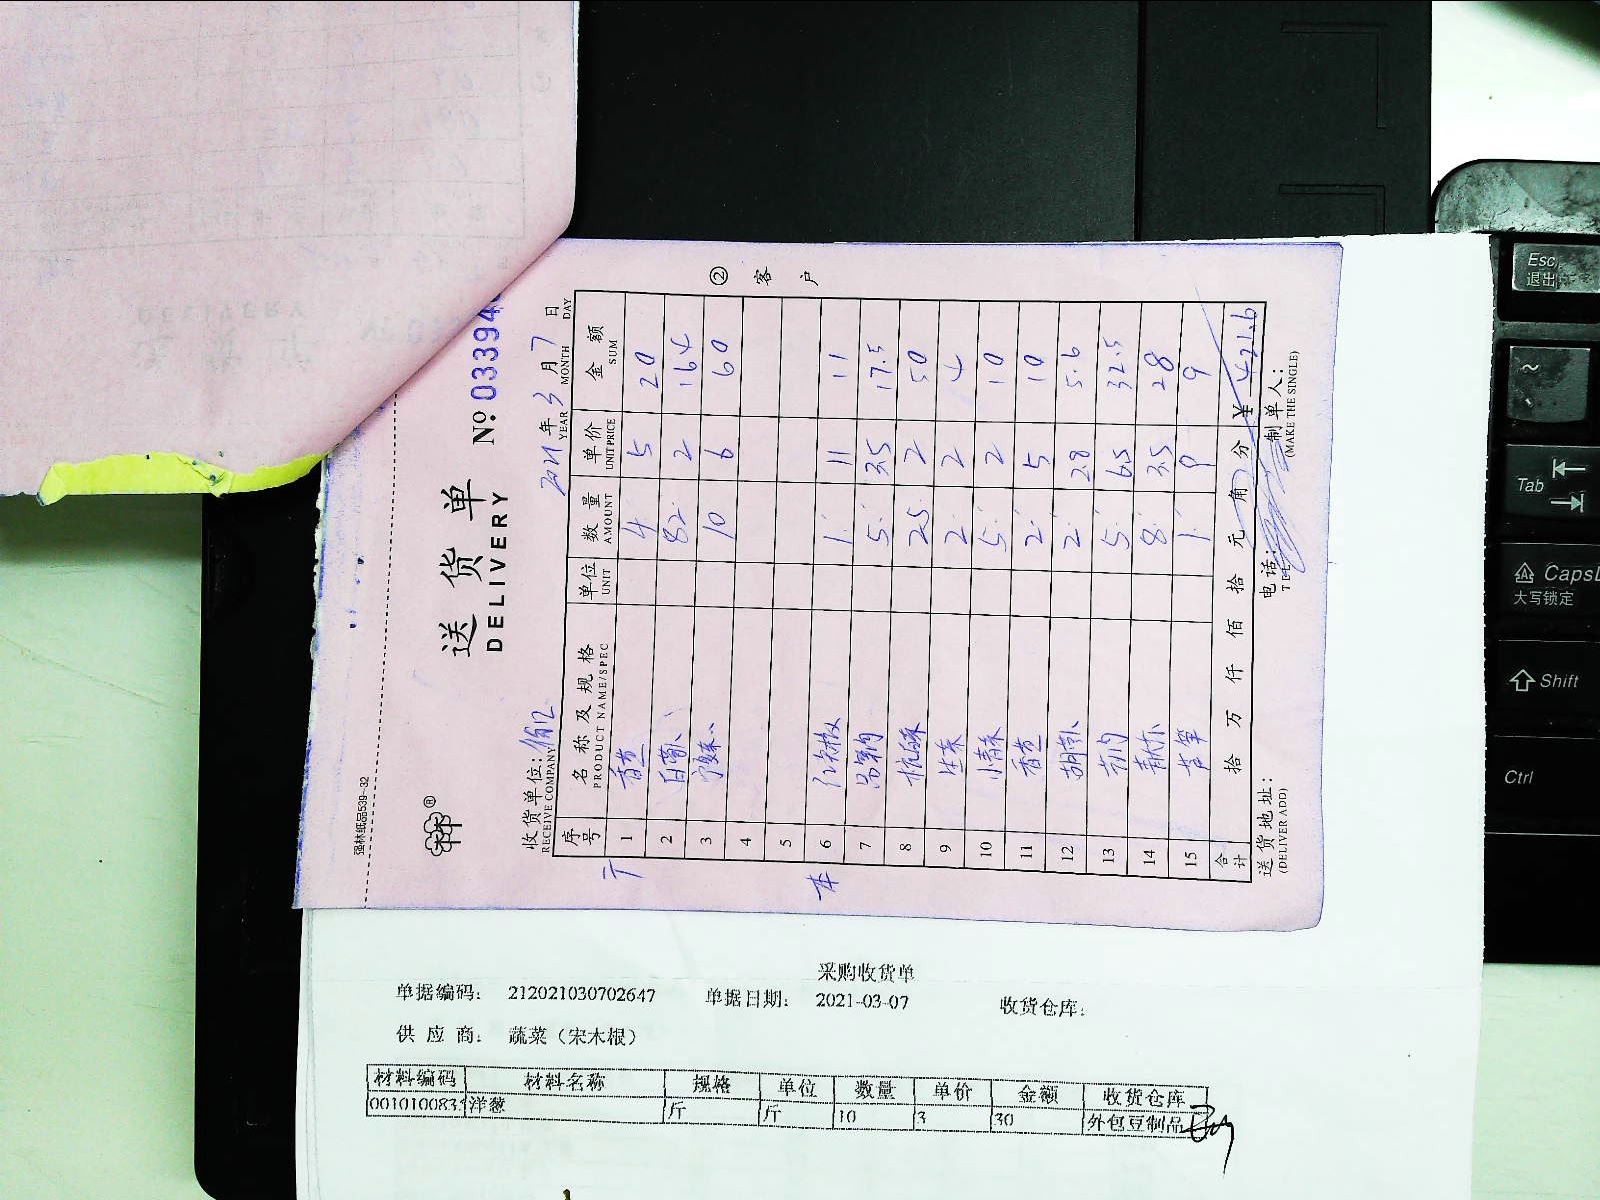 强林纸品539-32
®
送 货 单
DELIVERY
№ 03394
收货单位:
RECEIVE COMPANY
2021年3月7日
YEAR MONTH DAY
② 客 户
序号 名称及规格 单位 数量 单价 金额
PRODUCT NAME/SPEC UNIT AMOUNT UNIT PRICE SUM
1 香芹 4 5 20
2 白萝卜 82 2 164
3 10 6 60
4
5
6 红椒 1 11 11
7 5 3.5 17.5
8 25 2 50
9 生菜 2 2 4
10 小青菜 5 2 10
11 香芹 2 5 10
12 胡萝卜 2 2.8 5.6
13 5 6.5 32.5
14 8 3.5 28
15 芦笋 1 9 9
合计 拾 万 仟 佰 拾 元 角 分 ¥ 421.6
送货地址: 电话: 制单人:
(DELIVER ADD) TEL: (MAKE THE SINGLE)
采购收货单
单据编码: 212021030702647 单据日期: 2021-03-07 收货仓库:
供 应 商: 蔬菜(宋木根)
材料编码 材料名称 规格 单位 数量 单价 金额 收货仓库
001010083 洋葱 斤 斤 10 3 30 外包豆制品
Esc
退出
~
Tab
CapsL
大写锁定
Shift
Ctrl